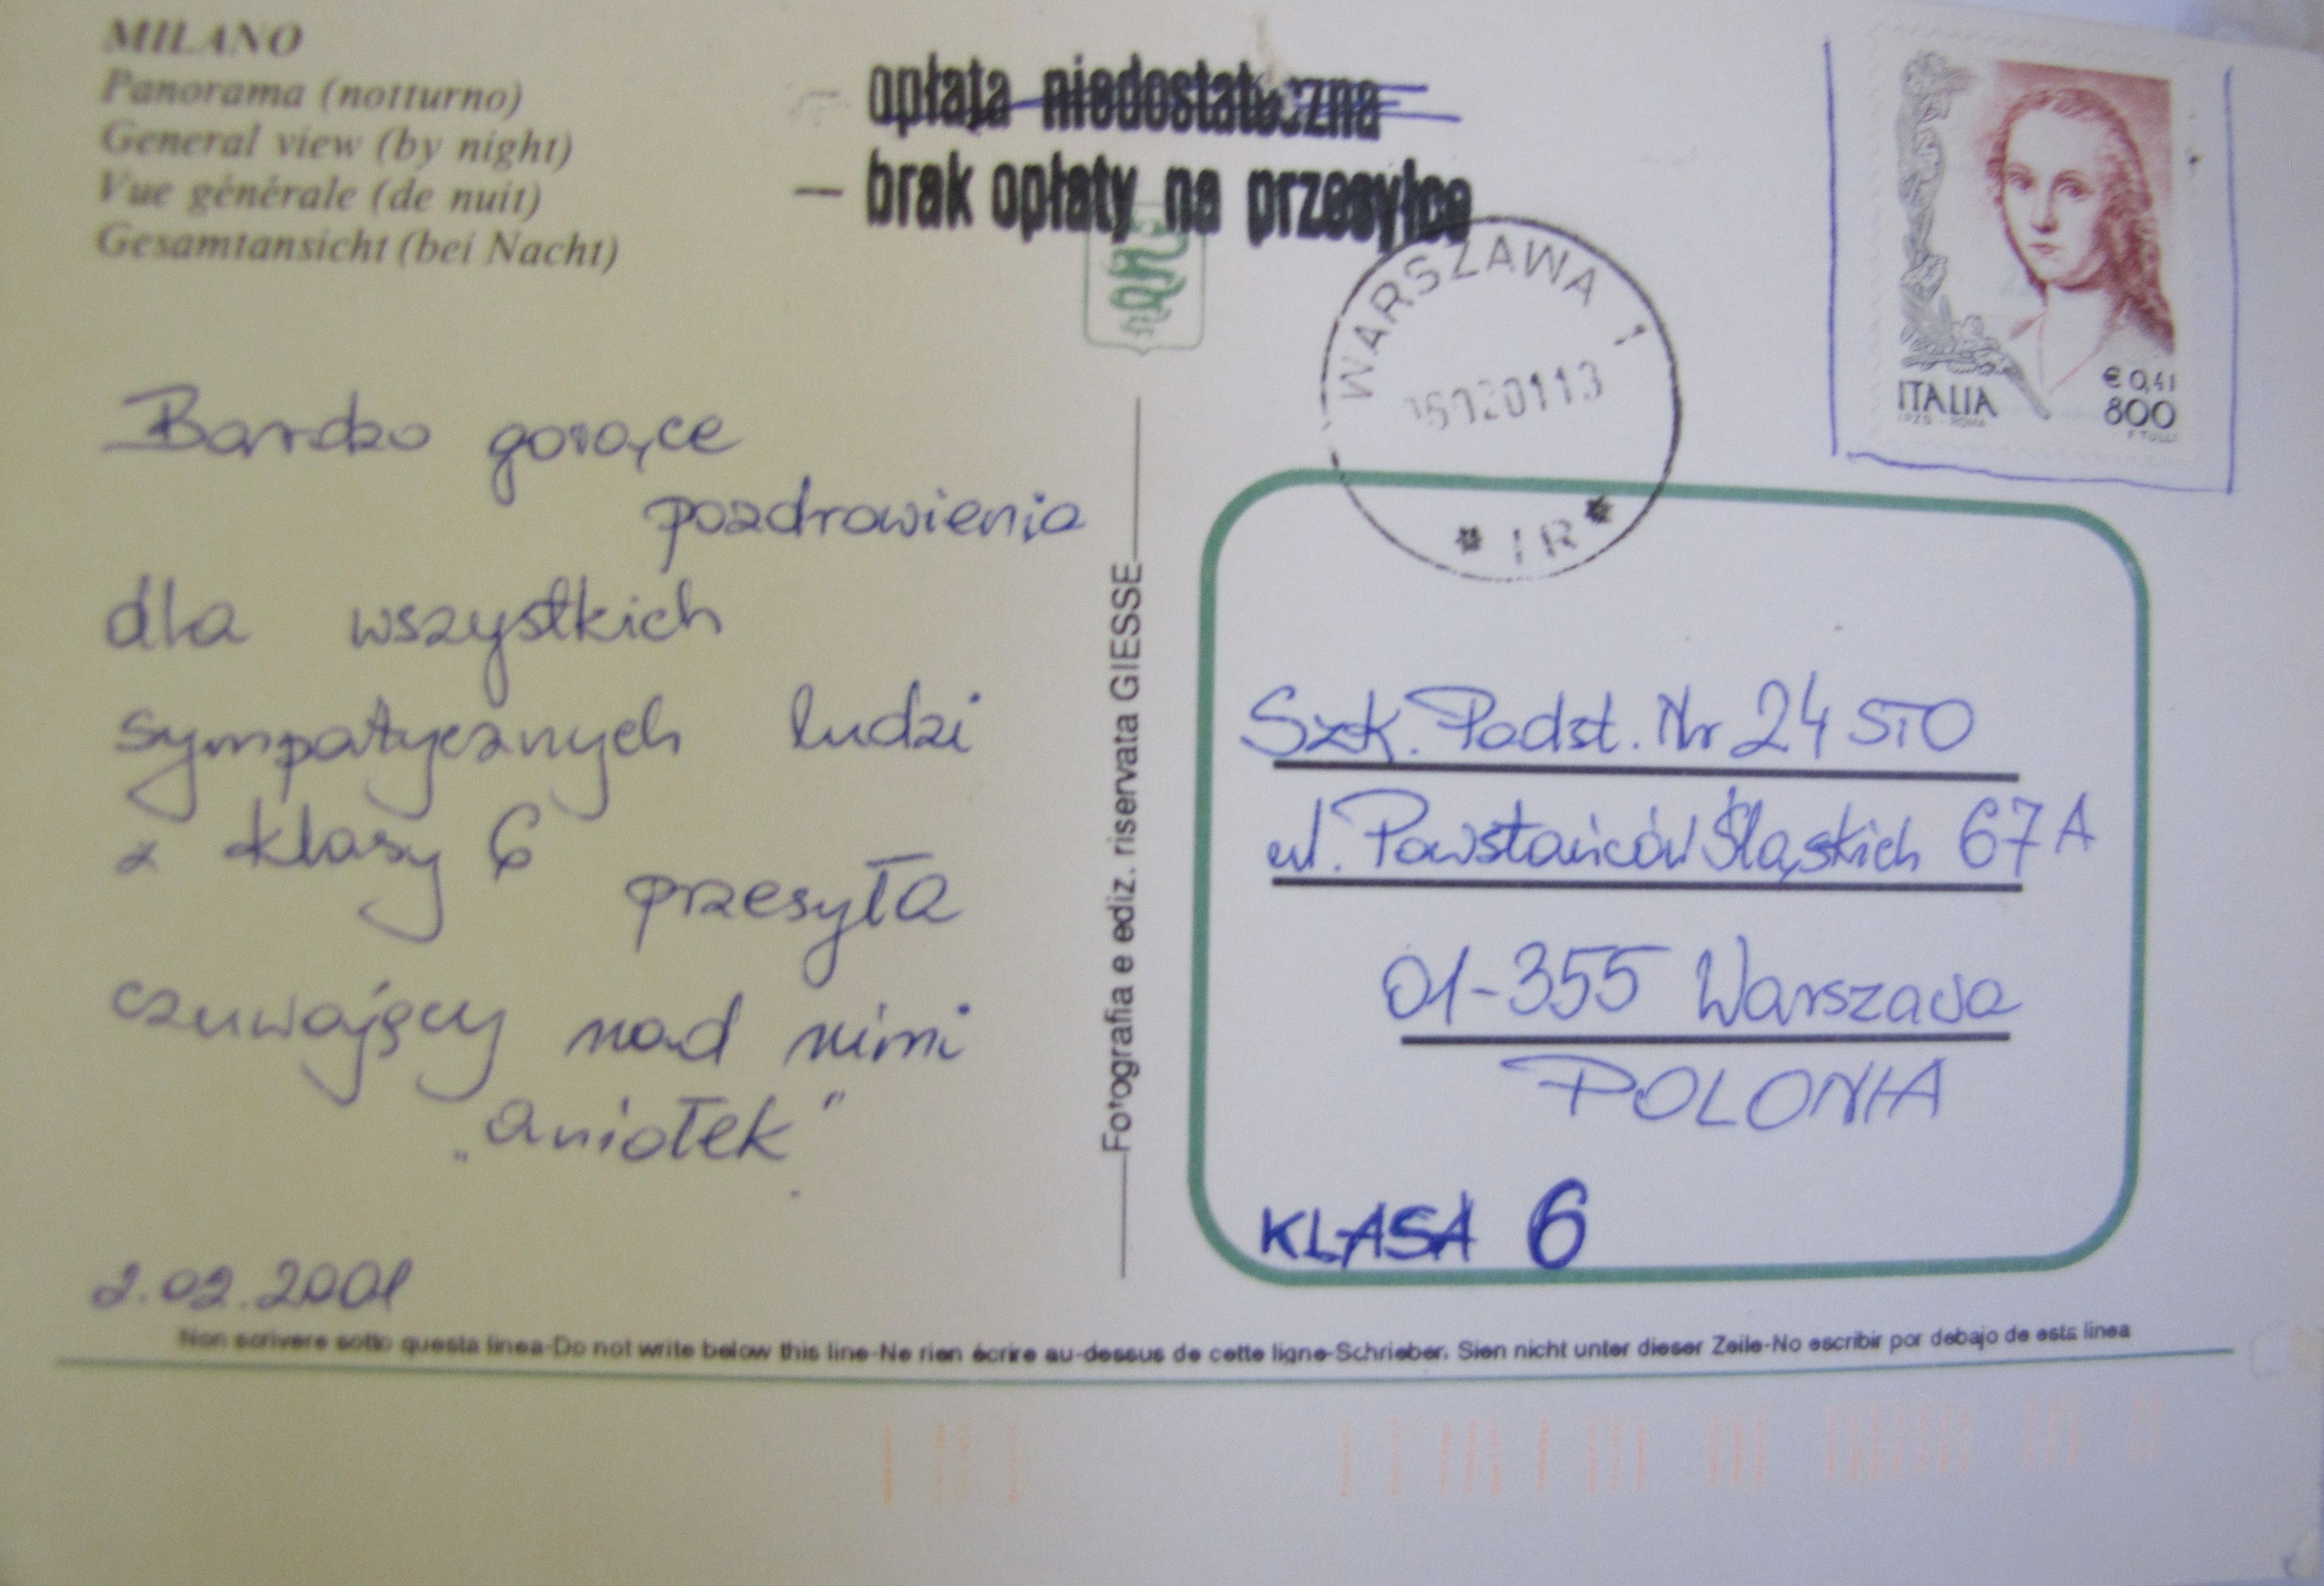 MILANO
Panorama (notturno)
General view (by night)
Vue générale (de nuit)
Gesamtansicht (bei Nacht)
— opłata niedostateczna
— brak opłaty na przesyłce
WARSZAWA 1
* 1R *
ITALIA
€ 0,41
800
Bardzo gorące
pozdrowienia
dla wszystkich
sympatycznych ludzi
z klasy 6
przesyła
czuwający nad nimi
„aniołek”
2.02.2001
Fotografia e ediz. riservata GIESSE
Szk. Podst. Nr 24 STO
ul. Powstańców Śląskich 67A
01-355 Warszawa
POLONIA
KLASA 6
Non scrivere sotto questa linea-Do not write below this line-Ne rien écrire au-dessus de cette ligne-Schrieber. Sien nicht unter dieser Zeile-No escribir por debajo de esta linea